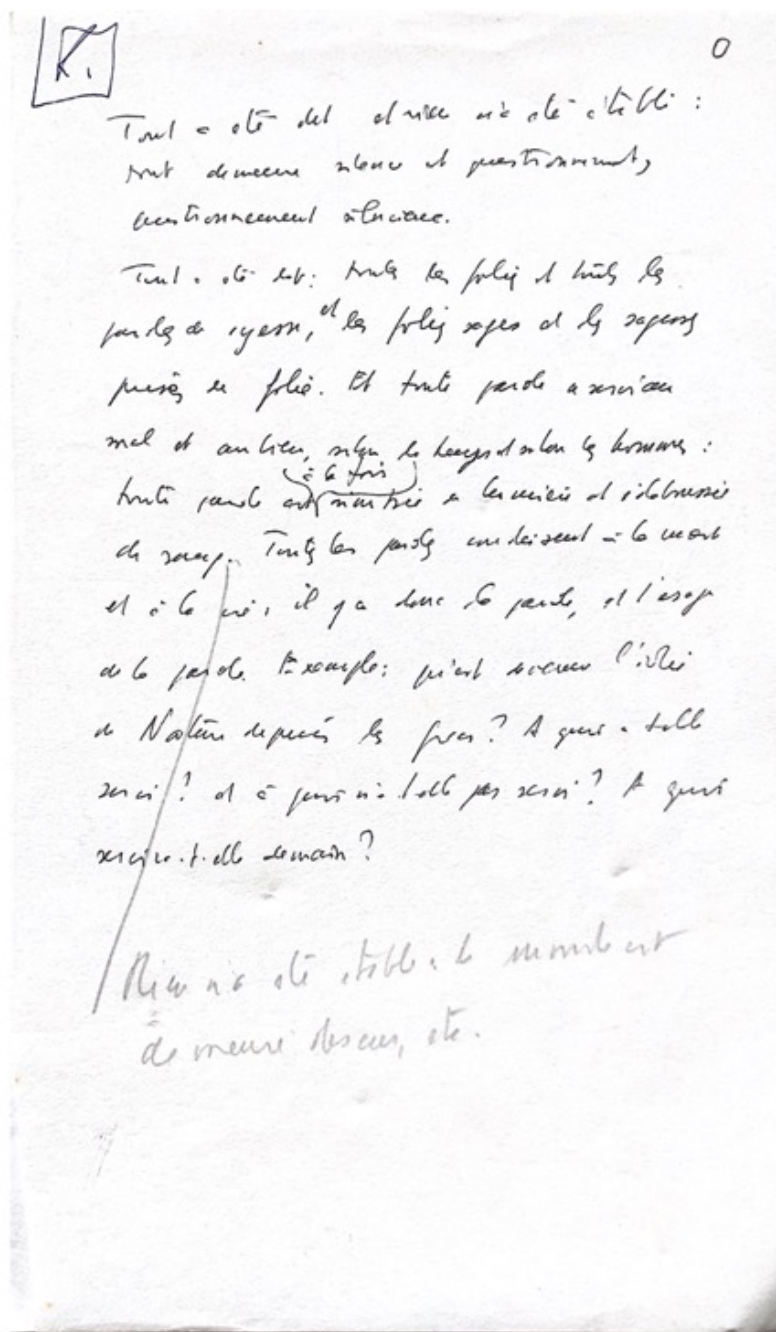 K.
0
Tout a été dit et rien n'a été établi :
tout demeure silence et questionnement,
questionnement silencieux.
Tout a été dit : toutes les folies et toutes les
paroles de sagesse, et les folies sages et les sagesses
prises de folie. Et toute parole a servi au
mal et au bien, selon les temps et selon les hommes :
à la fois
toute parole est lumière et éclaboussée
de sang. Toutes les paroles conduisent à la mort
et à la vie, il y a donc la parole, et l'usage
de la parole. Exemple : qu'est devenue l'idée
de Nature depuis les grecs ? A quoi a-t-elle
servi ? et à quoi n'a-t-elle pas servi ? A quoi
servira-t-elle demain ?
Rien n'a été établi : le monde est
demeuré obscur, etc.